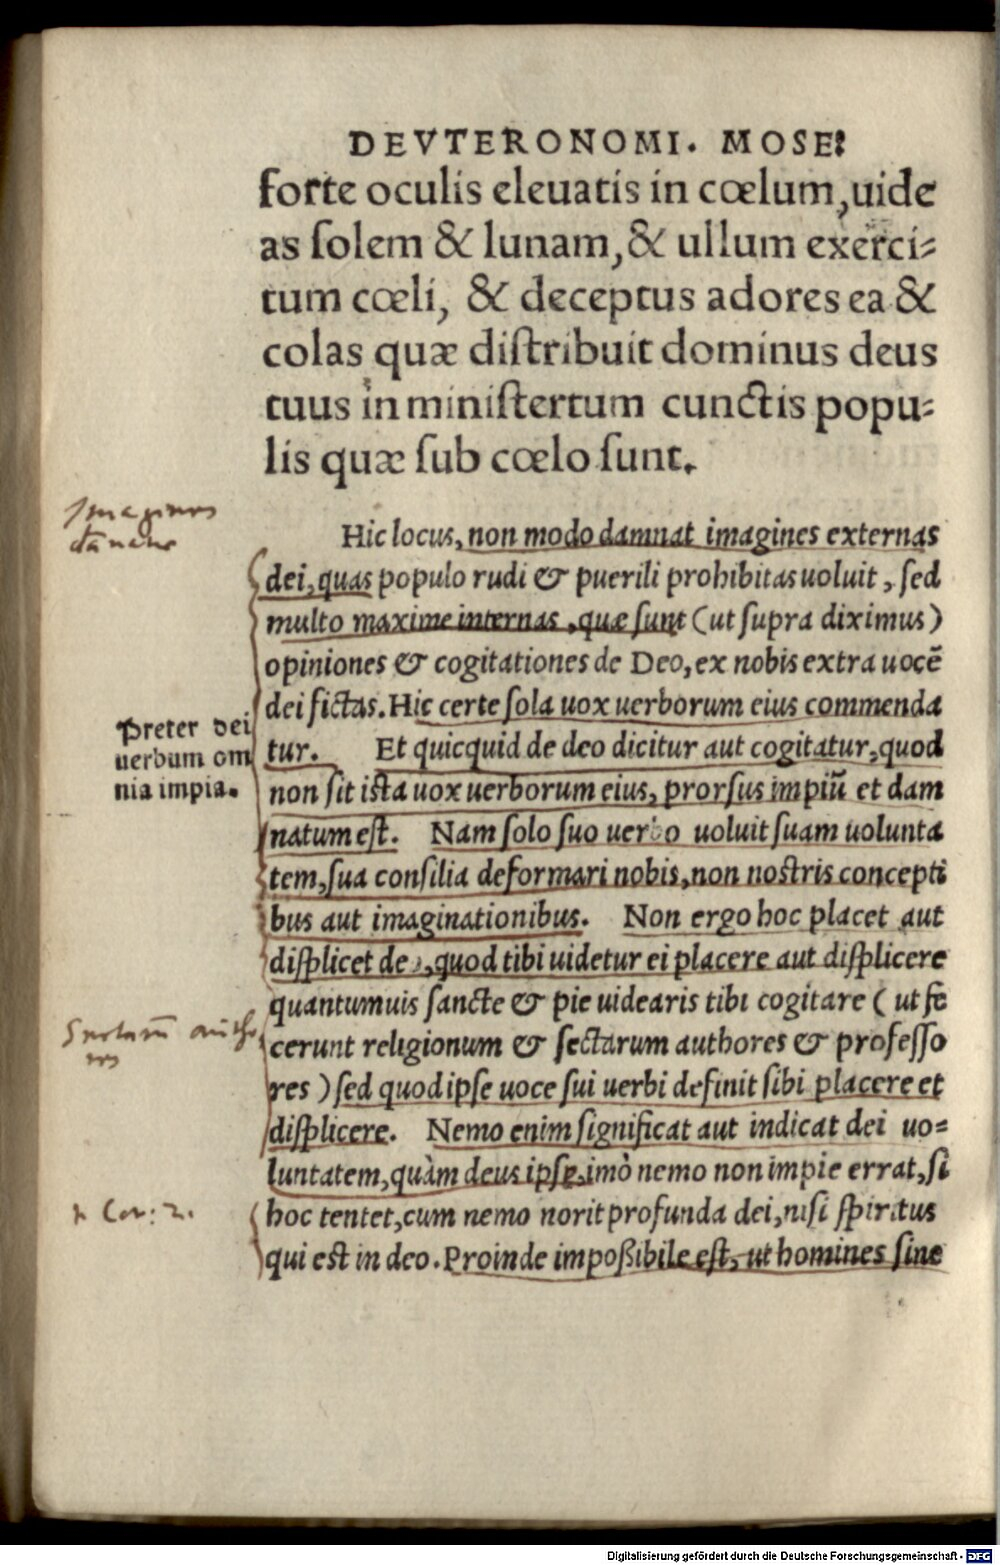 DEVTERONOMI. MOSE:
forte oculis eleuatis in cœlum, uide
as ſolem & lunam, & ullum exerci⸗
tum cœli, & deceptus adores ea &
colas quæ diſtribuit dominus deus
tuus in miniſtertum cunctis popu⸗
lis quæ ſub cœlo ſunt.
Imagines
Hic locus, non modo damnat imagines externas
dei, quas populo rudi & puerili prohibitas uoluit, ſed
multo maxime internas, quæ ſunt (ut ſupra diximus)
opiniones & cogitationes de Deo, ex nobis extra uocē
dei fictas. Hic certe ſola uox uerborum eius commenda
Preter dei
uerbum om
nia impia.
tur. Et quicquid de deo dicitur aut cogitatur, quod
non ſit iſta uox uerborum eius, prorſus impiū et dam
natum eſt. Nam ſolo ſuo uerbo uoluit ſuam uolunta
tem, ſua conſilia deformari nobis, non noſtris concepti
bus aut imaginationibus. Non ergo hoc placet aut
diſplicet deo, quod tibi uidetur ei placere aut diſplicere
quantumuis ſancte & pie uidearis tibi cogitare (ut fe
cerunt religionum & ſectarum authores & profeſſo
res) ſed quod ipſe uoce ſui uerbi definit ſibi placere et
diſplicere. Nemo enim ſignificat aut indicat dei uo⸗
luntatem, quàm deus ipſe, imò nemo non impie errat, ſi
1 Cor: 2.
hoc tentet, cum nemo norit profunda dei, niſi ſpiritus
qui eſt in deo. Proinde impoßibile eſt, ut homines ſine
Digitalisierung gefördert durch die Deutsche Forschungsgemeinschaft - DFG